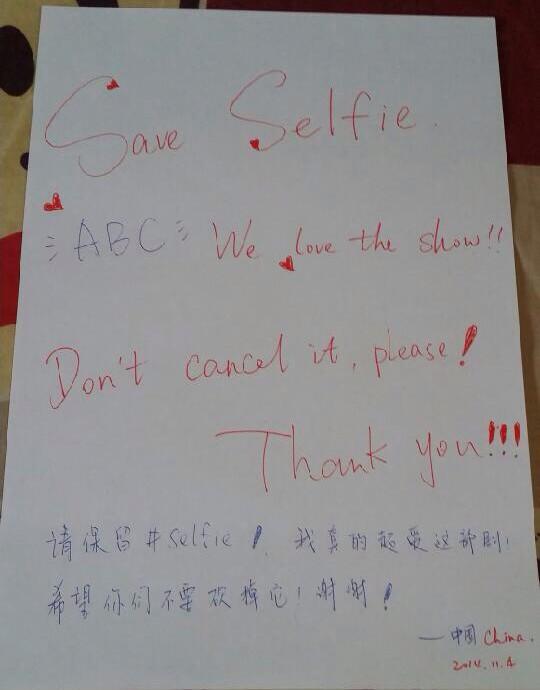 Save Selfie.
ABC We love the show!!
Don't cancel it, please!
Thank you!!!
请保留#Selfie! 我真的超爱这部剧!
希望你们不要砍掉它!谢谢!
—中国 China.
2014.11.4